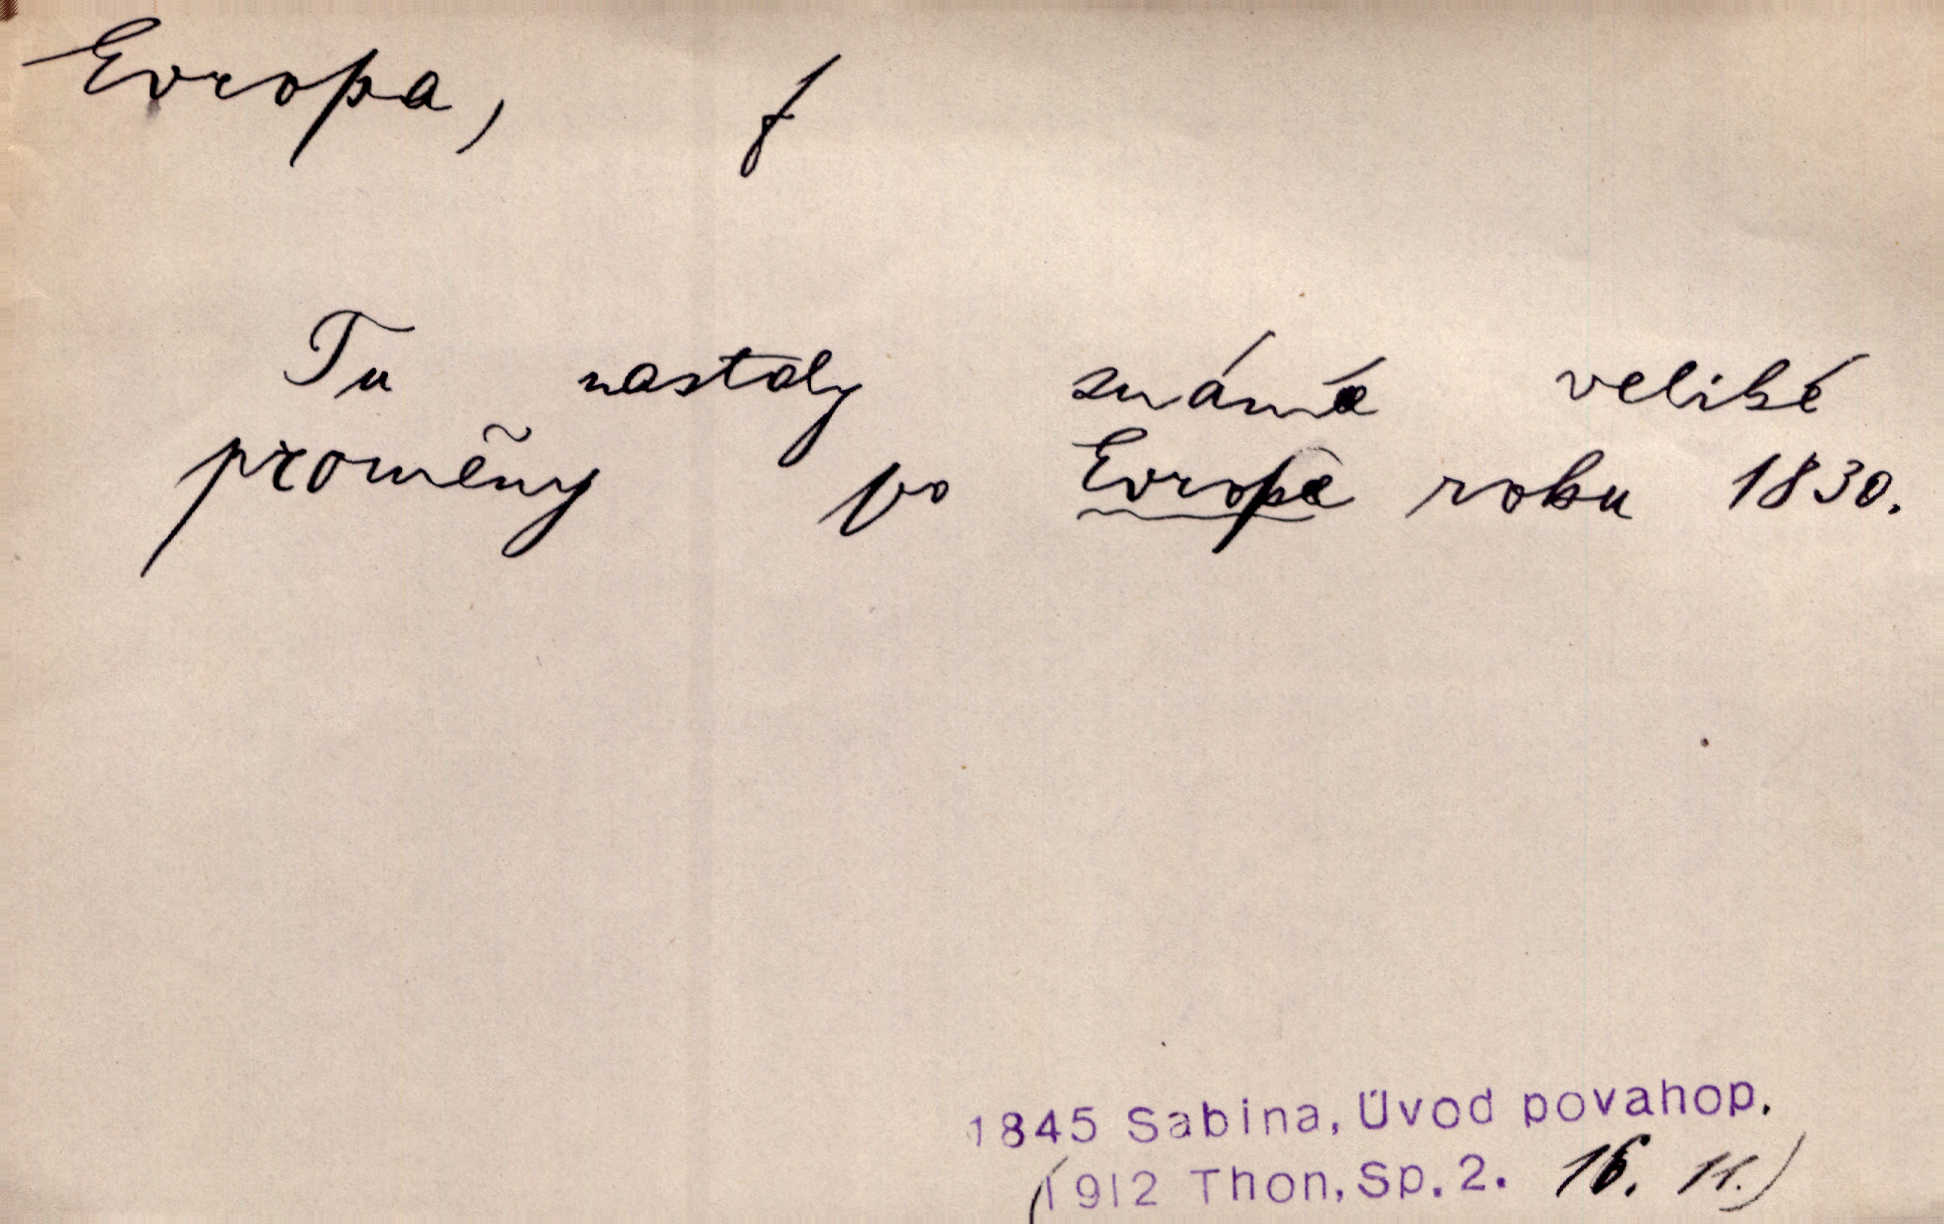 Evropa, f
Tu nastaly známé veliké
proměny po Evropě roku 1830.
1845 Sabina, Úvod povahop.
(1912 Thon, Sp. 2. 16. 11.)